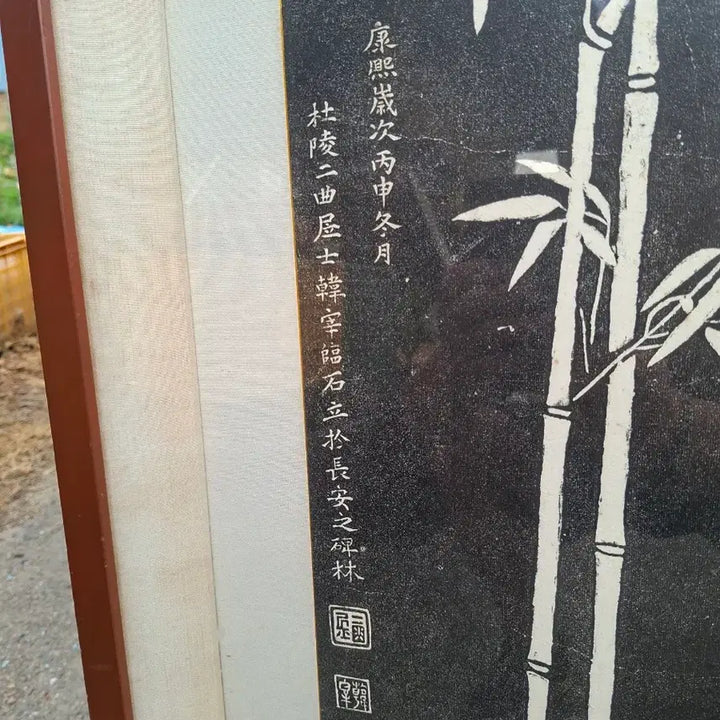 康熙歲次丙申冬月
杜陵二曲居士韓宰臨石立於長安之碑林